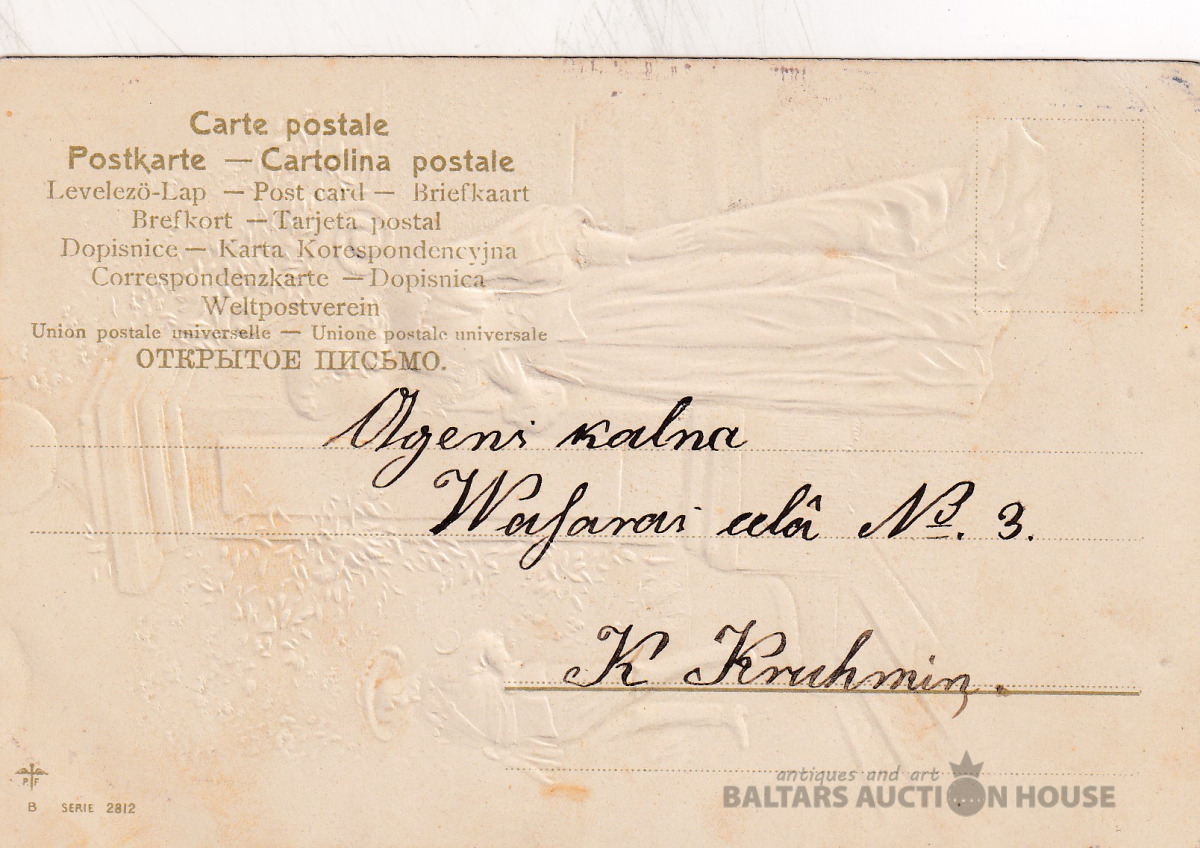 Carte postale
Postkarte — Cartolina postale
Levelezö-Lap — Post card — Briefkaart
Brefkort — Tarjeta postal
Dopisnice — Karta Korespondencyjna
Correspondenzkarte — Dopisnica
Weltpostverein
Union postale universelle — Unione postale universale
ОТКРЫТОЕ ПИСЬМО.
Ageni kalna
Waſarai eelâ № 3.
K Kruhmiņ.
P F
B SERIE 2812
antiques and art
BALTARS AUCTION HOUSE